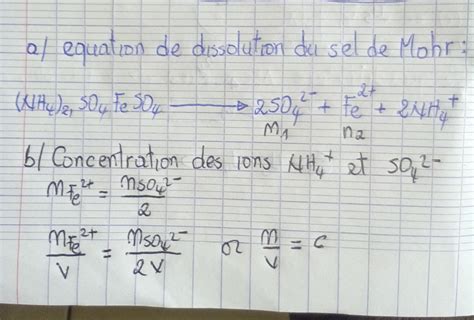 a/ equation de dissolution du sel de Mohr :
(NH₄)₂, SO₄ FeSO₄ ⟶ 2SO₄²⁻ + Fe²⁺ + 2NH₄⁺
n₁ n₂
b/ Concentration des ions NH₄⁺ et SO₄²⁻
nFe²⁺ = nSO₄²⁻/2
nFe²⁺/V = nSO₄²⁻/2V or n/V = c